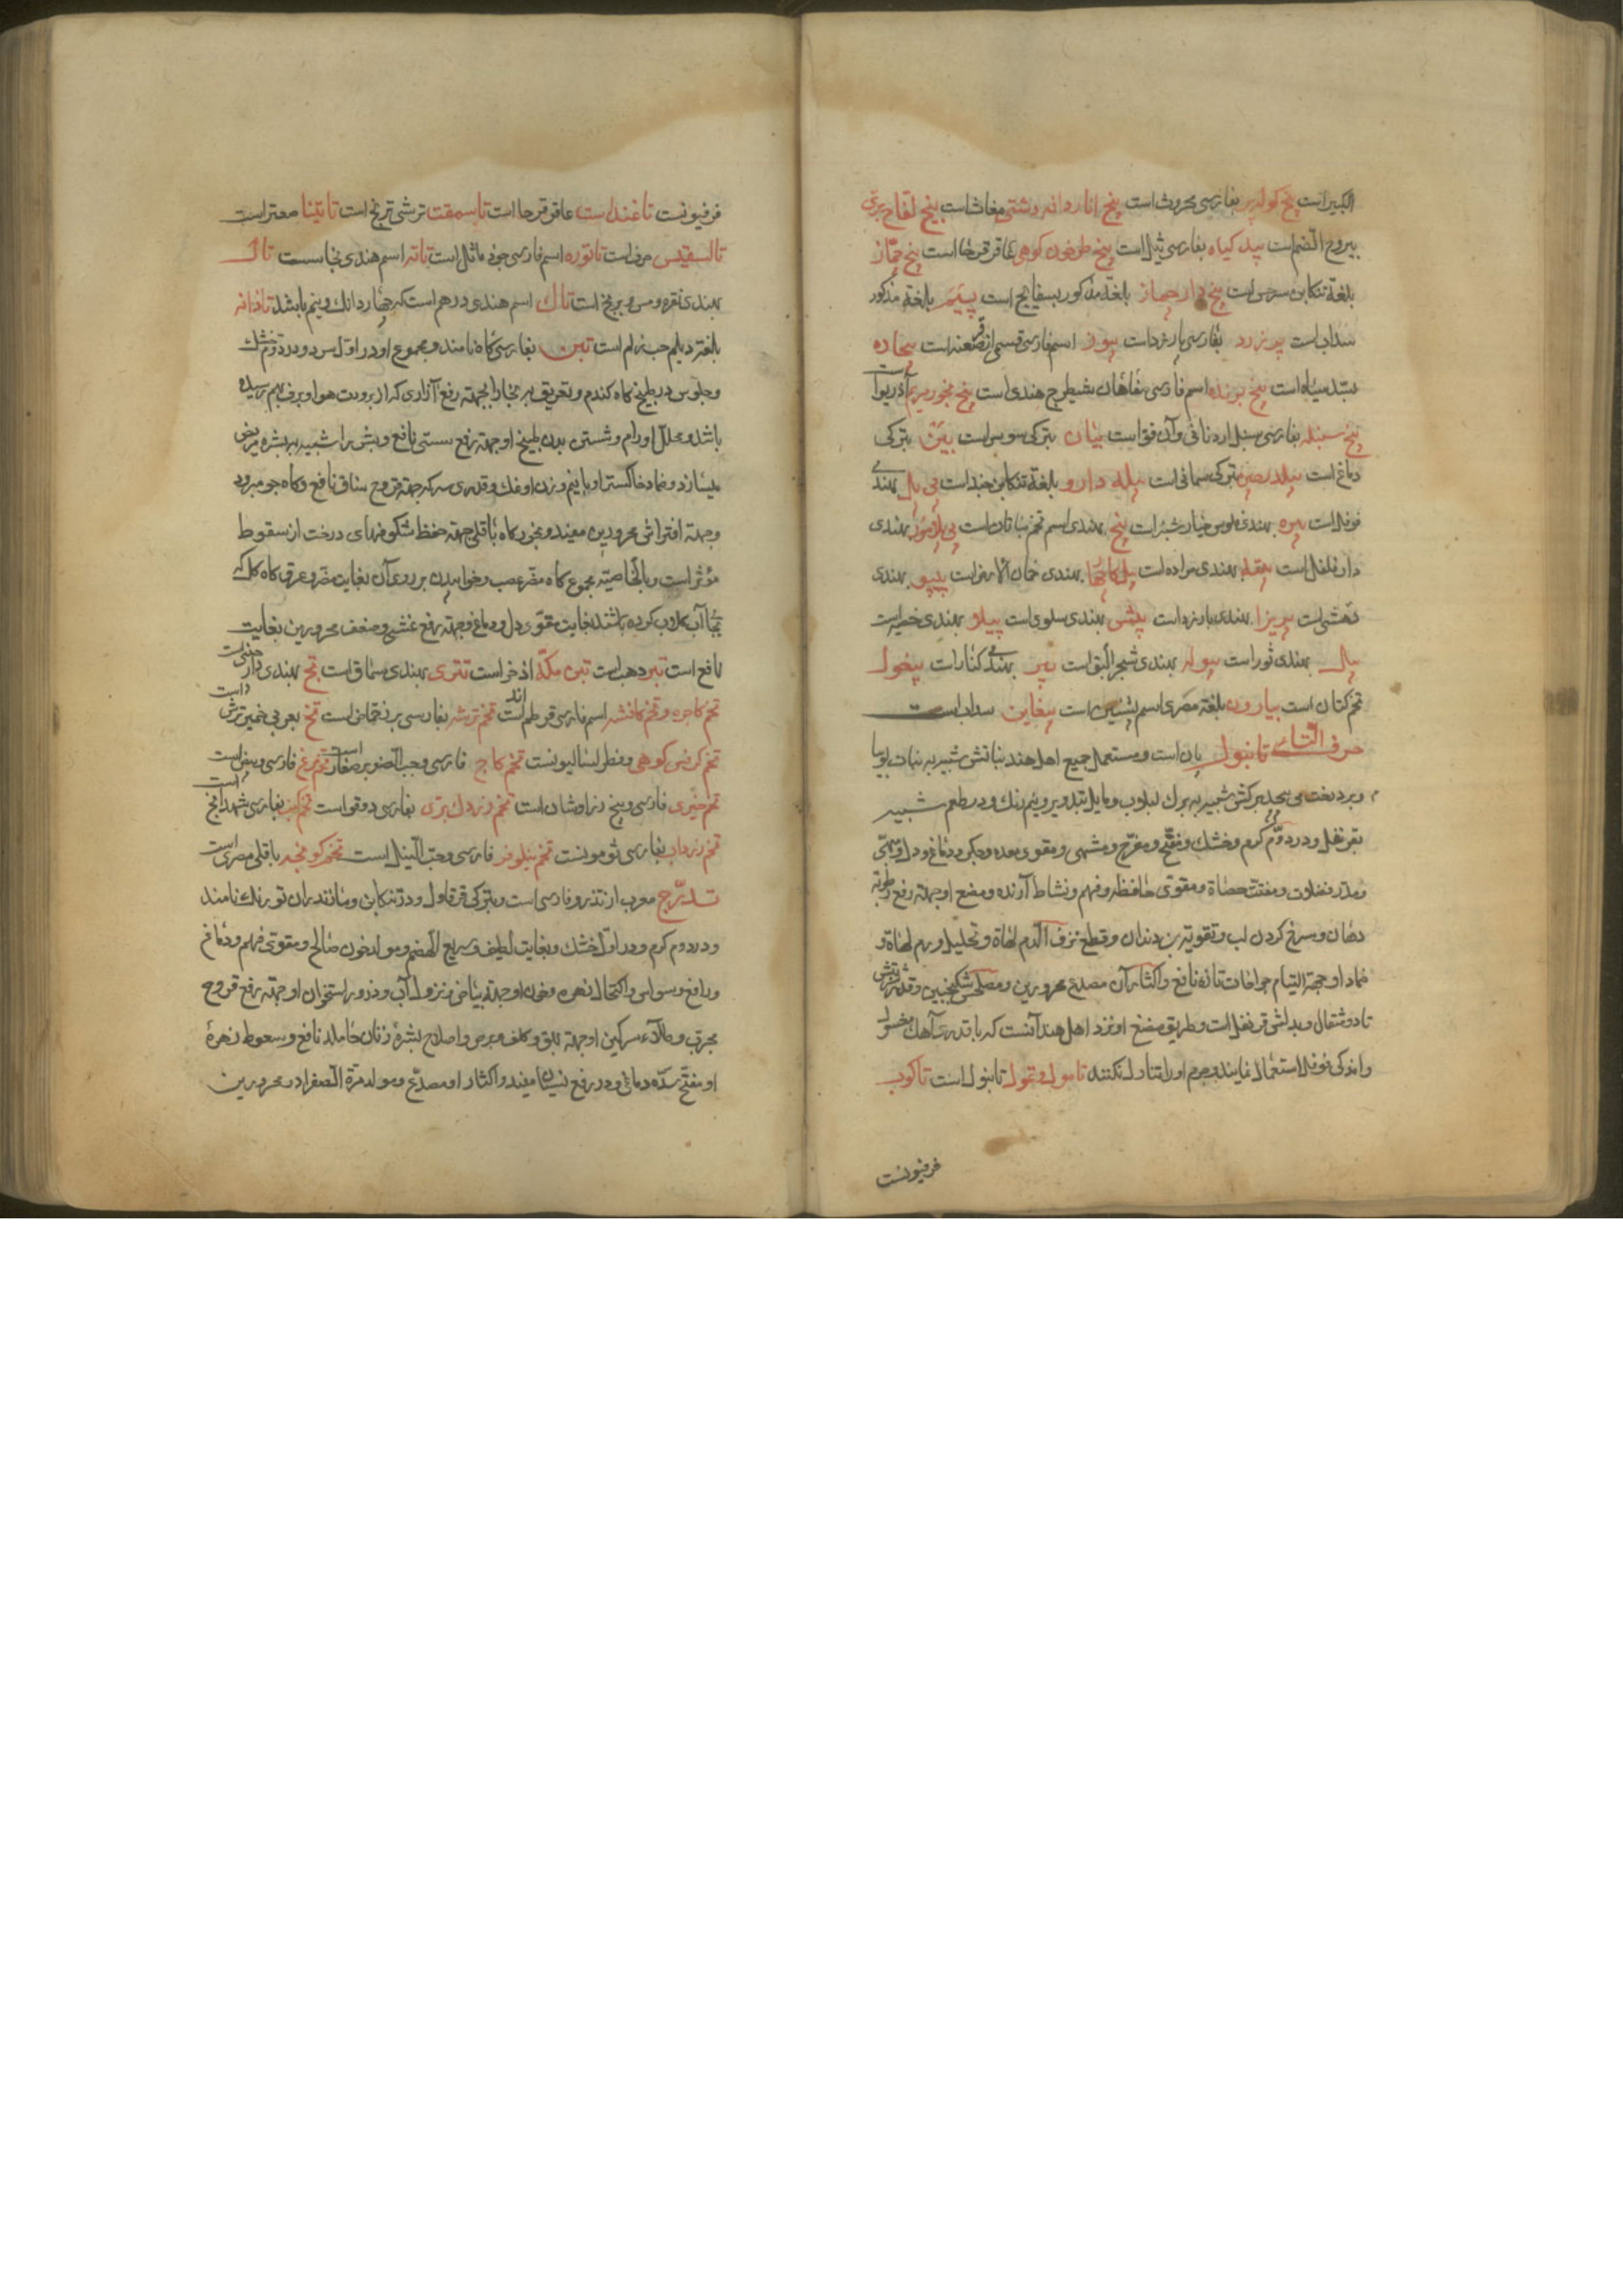 الکبیر است بیخ کوله پر بفارسی محروث است بیخ انار دانه دشتی مغاث است بیخ لفاح بری
یبروح الصنم است بید کیاه بفارسی ثیل است بیخ طرخون کوهی عاقر قرحا است بیخ جماز
بلغة تنکابن سرخس است بیخ دار جماز بلغة مذکور بسفایج است بلغة مذکور
سداب است بیرزرد بفارسی بارزد است اسم فارسی قسمی از است بیجاده
سبد سیاه است بیخ برنده اسم فارسی شیطرج هندی است بیخ بخور مریم آذربوا
بیخ سنبله بفارسی و آن فو است بیان بترکی سوس است بین بترکی
دماغ است بترکی سمانی است بیله دارو بلغة تنکابن است بهندی
فوفل است بهندی فلوس خیارشنبر است بیخ بهندی اسم تخم است بهندی
دار فلفل است بهندی مراده است بهندی خمان الارض است بیپو بهندی
است بیریزا بهندی بارزد است بهندی سلوی است پیلا بهندی است
بیل بهندی ثور است بیوله بهندی شجر البق است بیر بهندی کنار است بیغول
تخم کتان است بیارون بلغة مصری اسم است بیغاین سداب است
حرف التاء تانبول پان است و مستعمل جمیع اهل هند نباتش شبیه بنبات لوبیا
و بر درخت می پیچد برکش شبیه ببرک لبلاب و مایل بتدویر و نیم رنک و در طعم شبیه
بقرنفل و در دوم کرم و خشک و مفتح و مفرح و مشهی و مقوی معده و جکر و دماغ و دل و
و مدر فضلات و مفتت حصاة و مقوی حافظه و فهم و نشاط آرنده و مضغ او جهة رفع رطوبة
دهان و سرخ کردن لب و تقویة بن دندان و قطع نزف الدم لهاة و تحلیل ورم لهاة و
ضماد او جهة التیام جراحات تازه نافع و اکثار آن مصدع محرورین و مصلحش سکنجبین و قدر شربتش
تا دو مثقال و بدلش قرنفل است و طریق مضغ او نزد اهل هند آنست که با قدری آهک مغسول
و اندکی فوفل استعمال نمایند و جرم او را تناول نکنند تامول و تمول تانبول است تاکوب
فرفیونست
فرفیونست تاغندست عاقر قرحا است تاسمقت ترشی ترنج است تانیثا صعتر است
تالسفیس حرف است تاتوره اسم فارسی جوز ماثل است تانبه اسم هندی نحاس است تال
بهندی نقره و مس و برنج است تانک اسم هندی درهم است که چهار دانک و نیم باشد تاذانه
بلغة دیلم حب زلم است تبن بفارسی کاه نامند و مجموع او در اول سرد و در دوم خشک
و جلوس در طبیخ کاه کندم و تعریق ببخار او جهة رفع آزاری که از برودت هوا و برف بهم رسیده
باشد و محلل اورام و شستن بدن بطبیخ او جهة رفع سستی نافع و بشره را شبیه ببشره مریض
میسازد و ضماد خاکستر او با نیم وزن او نمک و قدری سرکه جهة قروح ساق نافع و کاه جو مبرود
و جهة افتراش محرورین مفید و بخور کاه باقلی جهة حفظ شکوفهای درخت از سقوط
مؤثر است و بالخاصیة مجموع کاه مضر عصب و خوابیدن بر روی آن بغایت مضر و عرق کاه کل که
بجا آب کلاب کرده باشند بغایت مقوی دل و دماغ و جهة رفع غشی و ضعف محرورین بغایت
نافع است تبر ذهب است تبن مکه اذخر است تتری بهندی سماق است تج بهندی دارچینی است
تخم کاجره و تخم کافشه اسم فارسی قرطم است تخم ترشه بفارسی بزر حماض است تخ بعربی خمیر ترش است
تخم کرفس کوهی فطراسالیونست تخم کاج فارسی و حب الصنوبر صغار است تخم مرغ فارسی و بیض است
تخم خیری فارسی و بیخ است تخم زردک بری بفارسی دوقو است تخم کنب بفارسی شهدانج است
تخم زردان بفارسی نومونست تخم نیلوفر فارسی و حب النیل است تخم کو باقلی مصری است
تدرج معرب از تذرو فارسی است و بترکی قرقاول و در تنکابن و مازندران تورنک نامند
و در دوم کرم و در اول خشک و بغایت لطیف و سریع الهضم و مولد خون صالح و مقوی فهم و دماغ
و رافع وسواس و اکتحال زهره و خون او جهة بیاض و نزول آب و ذرور استخوان او جهة رفع قروح
مجرب و طلاء سرکین او جهة بهق و کلف و برص و اصلاح بشرهٔ زنان حامله نافع و سعوط زهرهٔ
او مفتح سدهٔ دماغ و در رفع نسیان مفید و اکثار او مصدع و مولد مرة الصفرا در محرورین